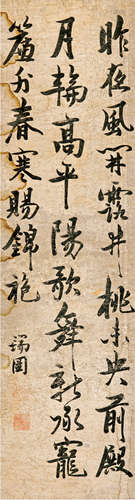 昨夜風開露井桃未央前殿
月輪高平陽歌舞新承寵
簾外春寒賜錦袍
瑞圖